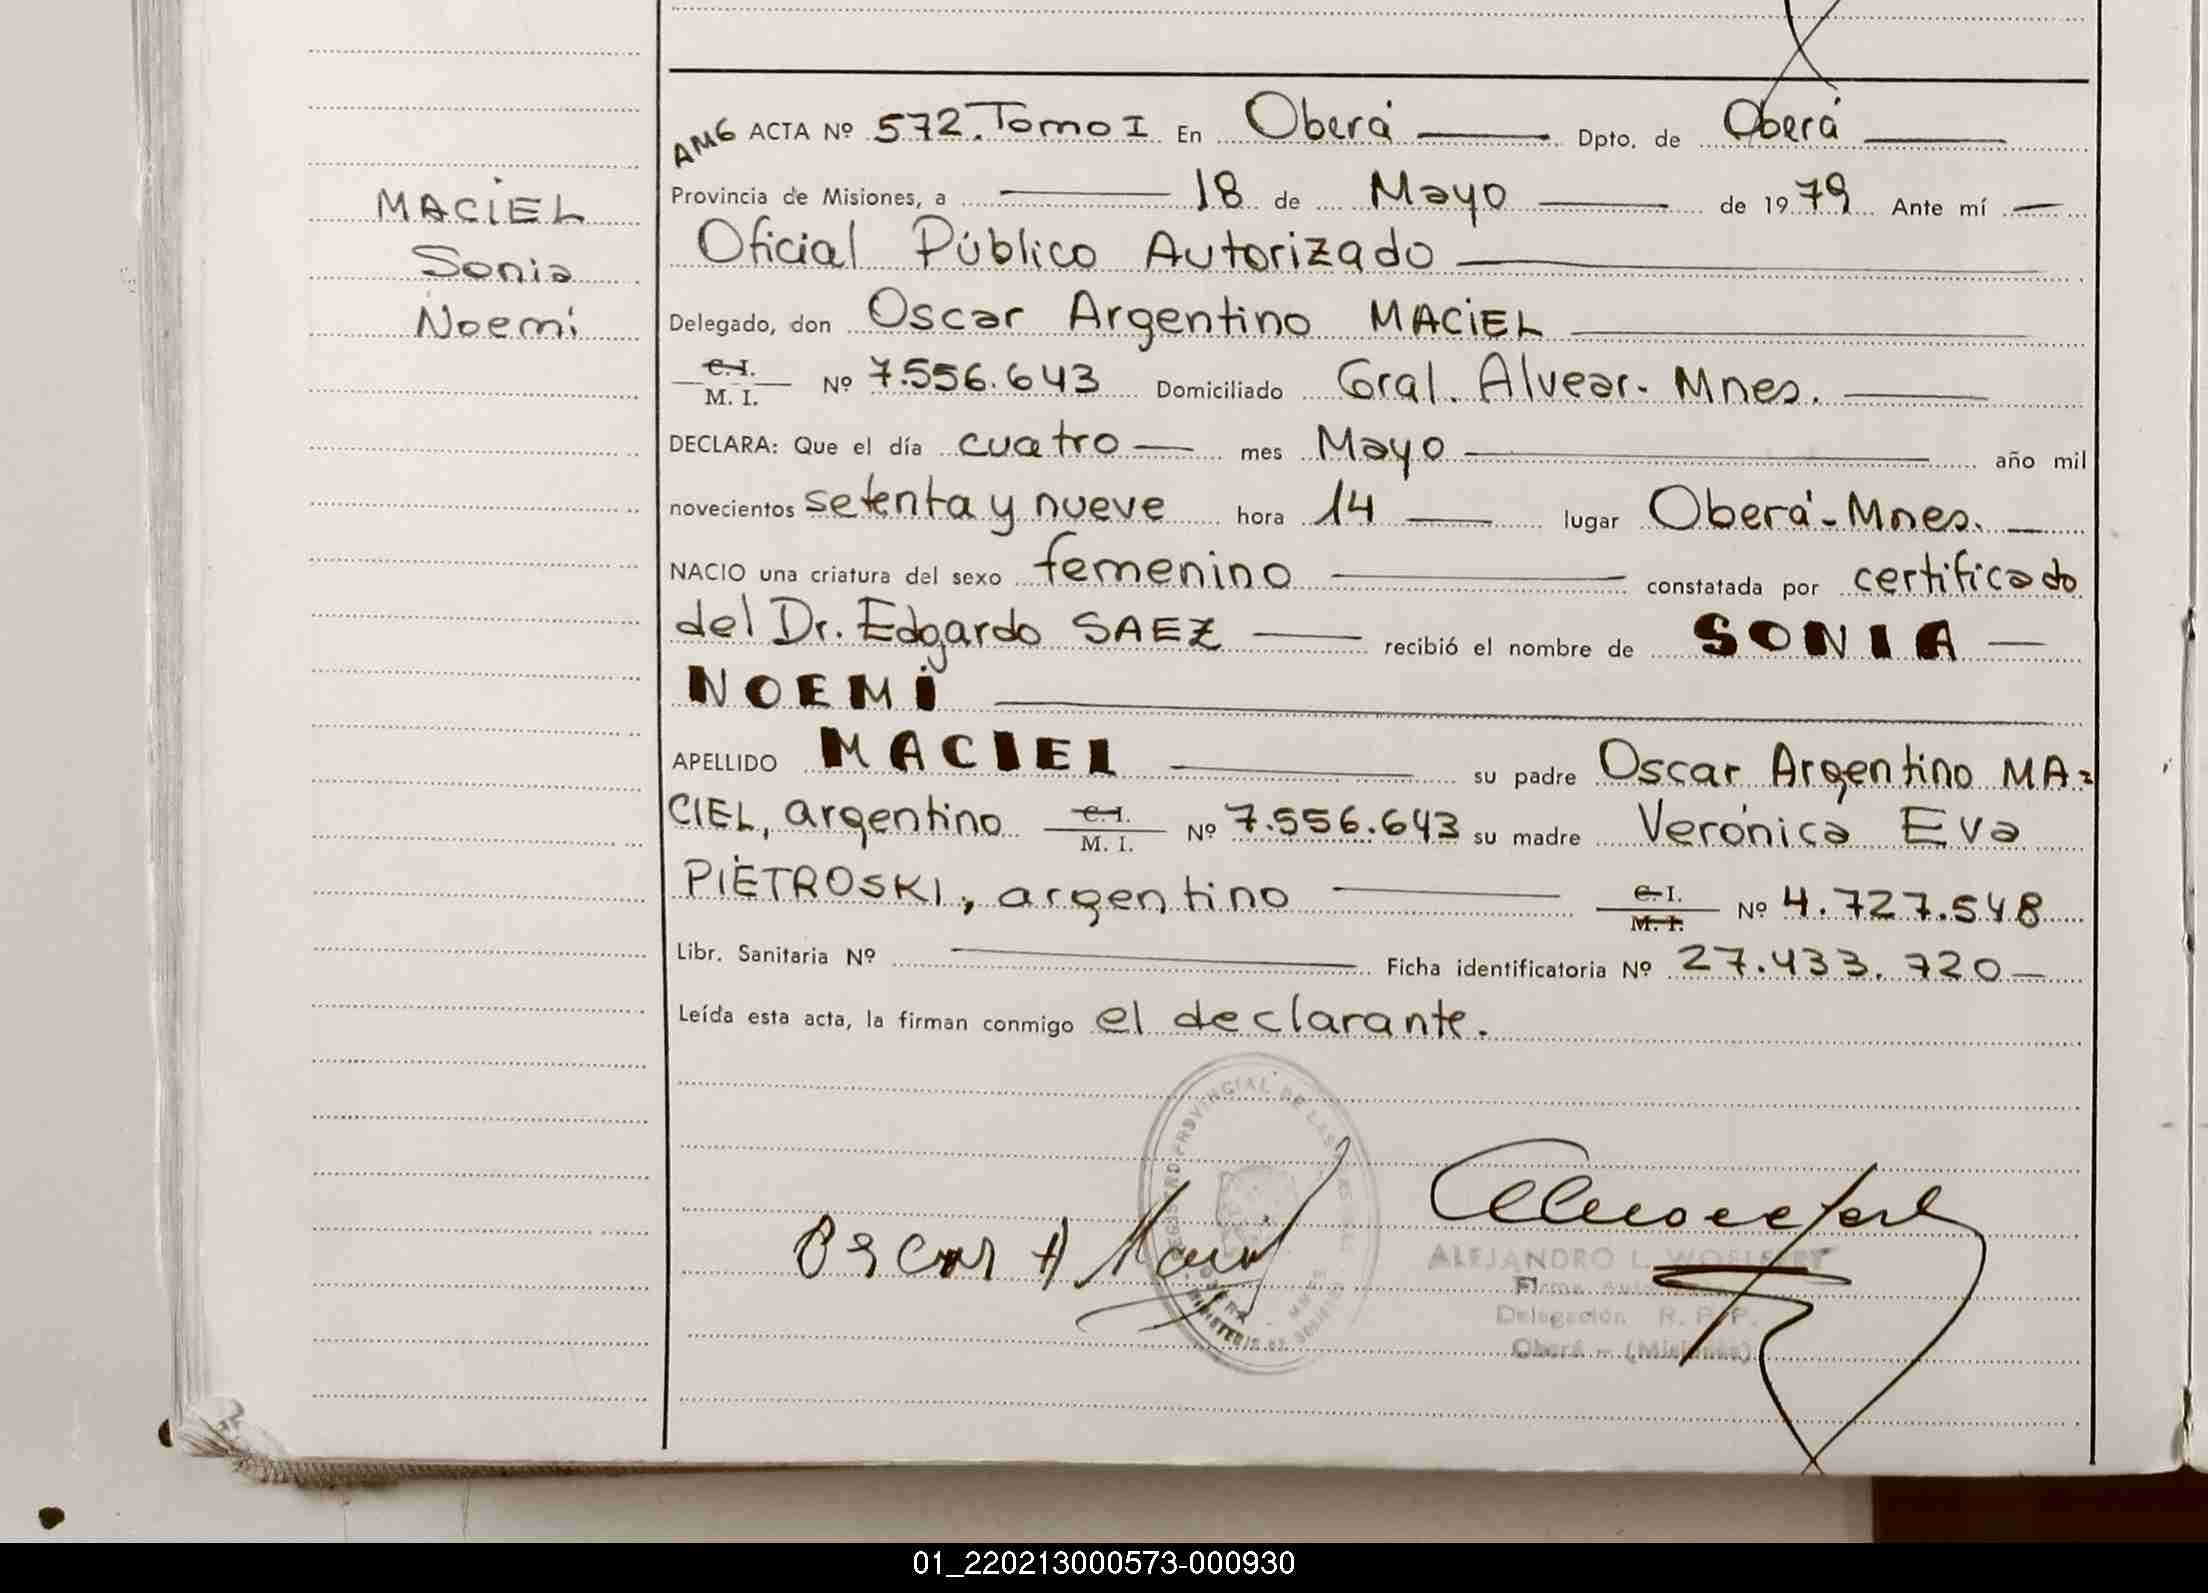 MACIEL
Sonia
Noemí
AMG ACTA Nº 572. Tomo I En Oberá Dpto. de Oberá
Provincia de Misiones, a 18 de Mayo de 1979 Ante mí
Oficial Público Autorizado
Delegado, don Oscar Argentino MACIEL
C. I.
M. I. Nº 7.556.643 Domiciliado Gral. Alvear - Mnes.
DECLARA: Que el día cuatro mes Mayo año mil
novecientos setenta y nueve hora 14 lugar Oberá - Mnes.
NACIO una criatura del sexo femenino constatada por certificado
del Dr. Edgardo SAEZ recibió el nombre de SONIA
NOEMI
APELLIDO MACIEL su padre Oscar Argentino MA=
CIEL, argentino C. I. M. I. Nº 7.556.643 su madre Verónica Eva
PIETROSKI, argentino C. I. M. I. Nº 4.727.548
Libr. Sanitaria Nº Ficha identificatoria Nº 27.433.720
Leída esta acta, la firman conmigo el declarante.
REGISTRO PROVINCIAL DE LAS
OBERA MNES
MINISTERIO DE
Oscar A Maciel
ALEJANDRO L.
Firma
Delegación R. P. P.
Oberá - (Misiones)
01_220213000573-000930